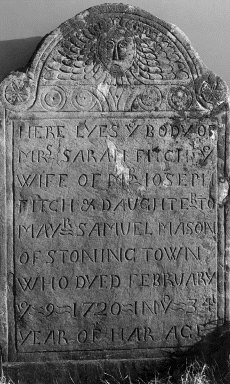 HERE LYES Y BODY OF
MRS SARAH FITCH Y
WIFE OF MR IOSEPH
FITCH & DAUGHTER TO
MAYR SAMUEL MASON
OF STONING TOWN
WHO DYED FEBRUARY
Y 9 1720 IN Y 34
YEAR OF HAR AGE